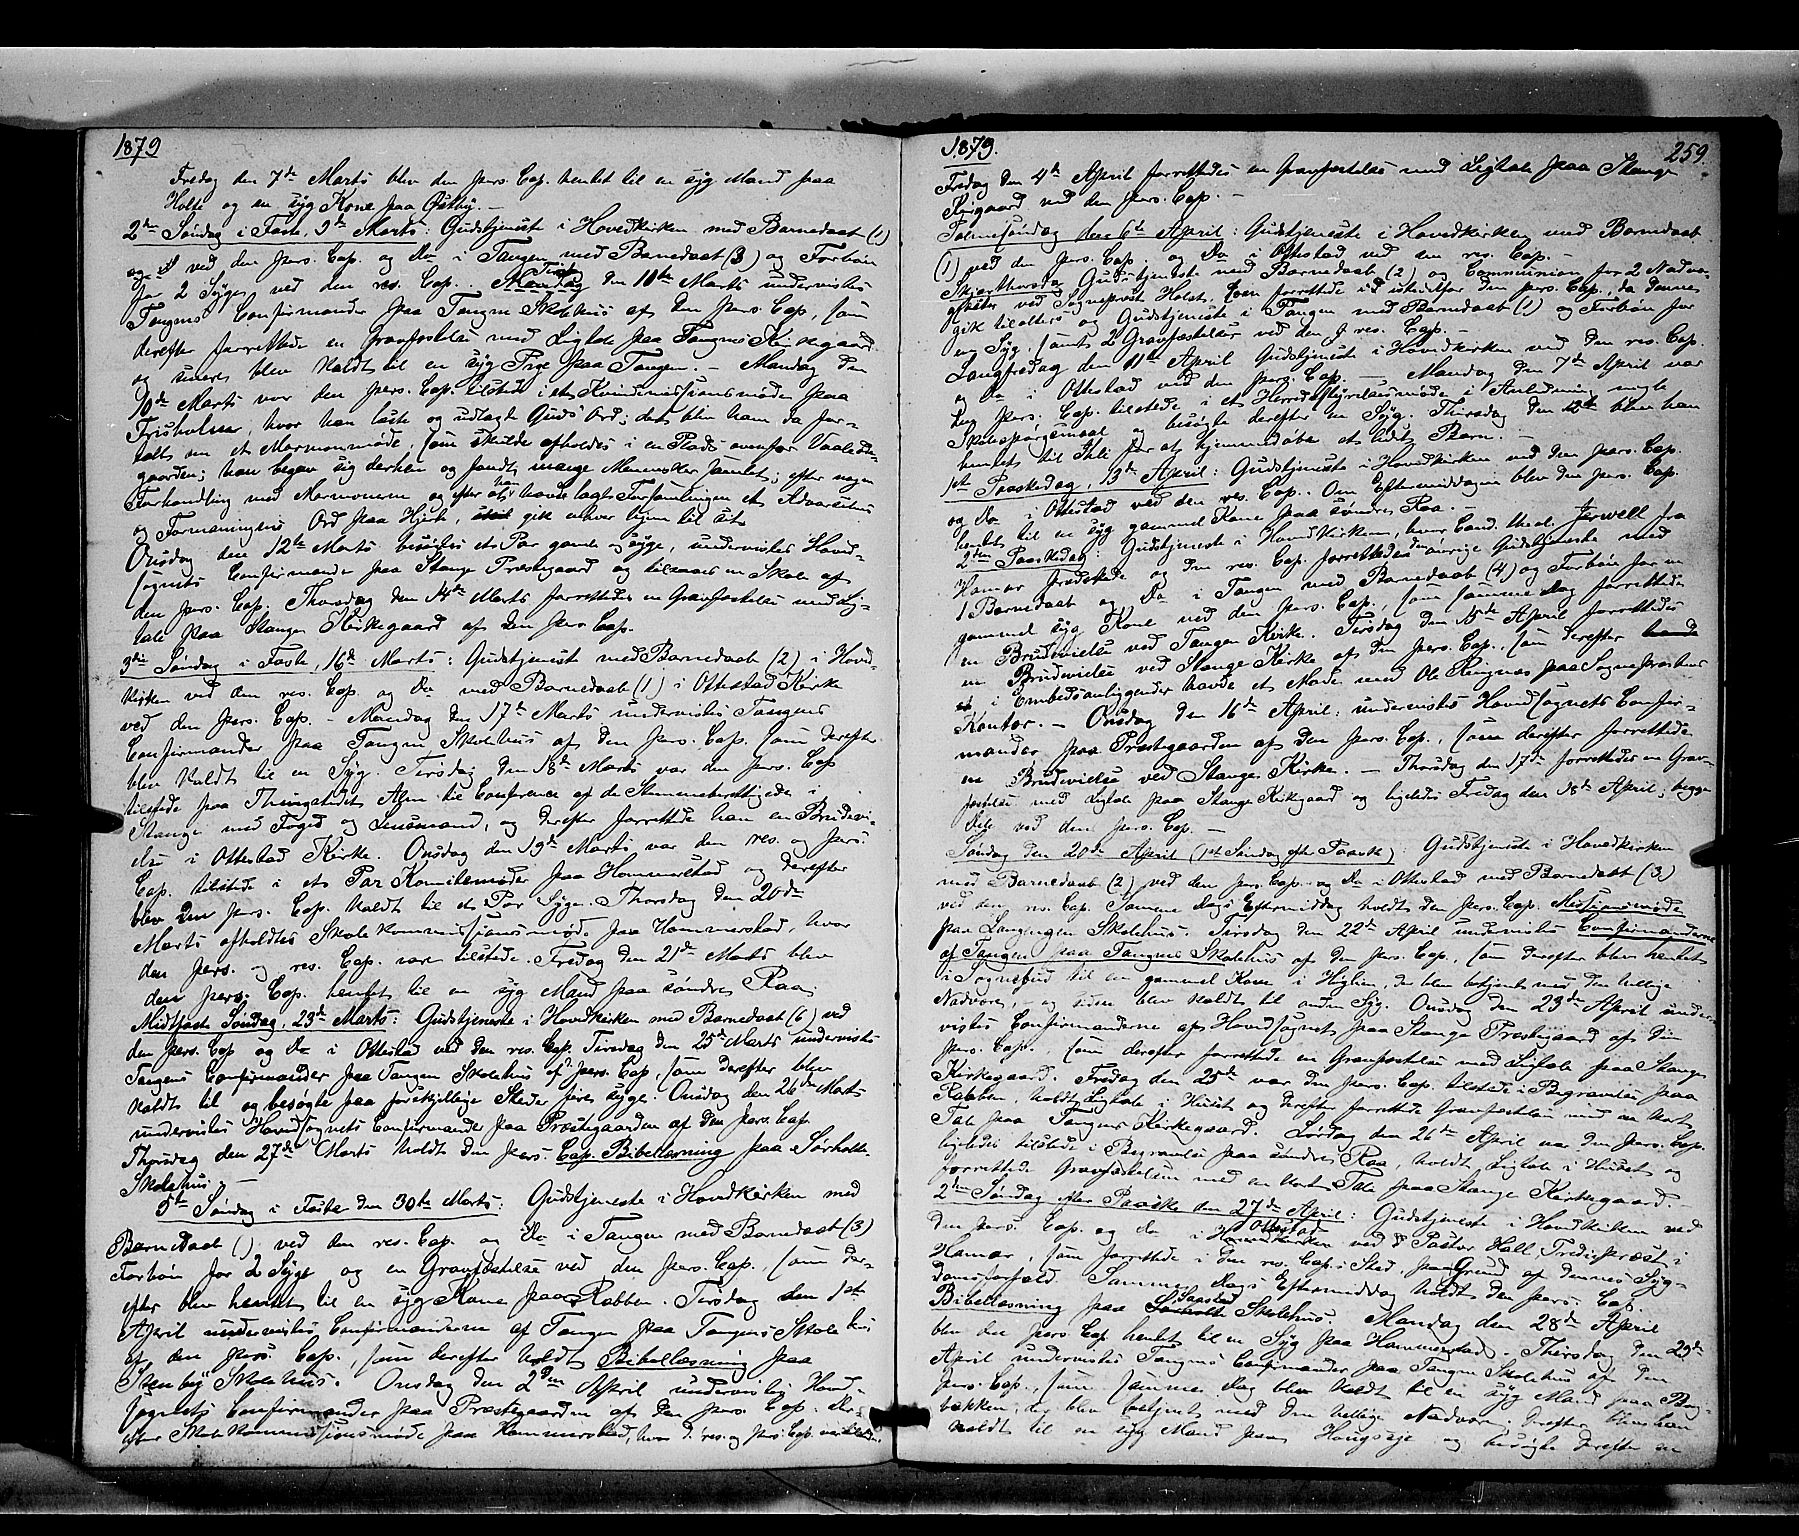 1879
Fredag den 7de Marts blev den pers. Cap. hentet til en syg Mand paa
Holte og en syg Kone paa Østby. –
2den Søndag i Faste, 9de Marts: Gudstjeneste i Hovedkirken med Barnedaab (1)
ved den pers. Cap. og Do i Tangen med Barnedaab (3) og Forbøn
for 2 Syge, ved den res. Cap. Tirsdag den 11te Marts undervistes
Tangens Confirmander paa Tangen Skolehus af den pers. Cap., som
derefter forrettede en Gravfæstelse med Ligtale paa Tangens Kirkegaard
og senere blev kaldt til en syg Pige paa Tangen. – Mandag den
10de Marts var den pers. Cap. tilstede i et Kvindemissionsmøde paa
Frisholmen, hvor han læste og udlagde Guds Ord; der blev ham da for-
talt om et Mormonmøde, som skulde afholdes i en Plads ovenfor
gaarden; han begav sig derhen og fandt mange Mennesker samlet; efter nogen
Forhandling med Mormonerne og efter at han havde lagt Forsamlingen et Advarselens
og Formaningens Ord paa Hjerte, gik enhver hjem til sit
Onsdag den 12te Marts besøgtes et Par gamle og syge, undervistes Hoved-
sognets Confirmander paa Stange Præstegaard og tilsaaes en Skole af
den pers. Cap. Thorsdag den Marts forrettedes en Gravfæstelse med Lig-
tale paa Stange Kirkegaard af den pers. Cap.
3die Søndag i Faste, 16de Marts: Gudstjeneste med Barnedaab (2) i Hoved-
kirken ved den res. Cap. og Do med Barnedaab (1) i Ottestad Kirke
ved den pers. Cap. – Mandag den 17de Marts undervistes Tangens
Confirmander paa Tangen Skolehus af den pers. Cap. som derefter
blev kaldt til en Syg. Tirsdag den 18de Marts var den pers. Cap.
tilstede paa Thingstedet Alm til Conference af de Stemmeberettigede i
Stange med Foged og Lensmand, og derefter forrettede han en Brudevi-
else i Ottestad Kirke. Onsdag den 19de Marts var den res. og pers.
Cap. tilstede i et Par Komitemøder paa Hommerstad og derefter
blev den pers. Cap. kaldt til et Par Syge. Thorsdag den 20de
Marts afholdtes Skolekommissionsmøde paa Hommerstad, hvor
den pers. og res. Cap. var tilstede. Fredag den 21de Marts blev
den pers. Cap. hentet til en syg Mand paa søndre Raa.
Midfaste Søndag, 23de Marts: Gudstjeneste i Hovedkirken med Barnedaab (6) ved
den pers. Cap. og Do i Ottestad ved den res. Cap. Tirsdag den 25de Marts undervistes
Tangens Confirmander paa Tangen Skolehus af d. pers. Cap., som derefter blev
kaldt til og besøgte paa forskjellige Steder fire syge. Onsdag den 26de Marts
undervistes Hovedsognets Confirmander paa Præstegaarden af den pers. Cap.
Thorsdag den 27de Marts holdt den pers. Cap. Bibellæsning paa Sørholte
Skolehus. –
5te Søndag i Faste den 30te Marts: Gudstjeneste i Hovedkirken med
Barnedaab (1) ved den res. Cap. og Do i Tangen med Barnedaab (3)
Forbøn for 2 Syge og en Gravfæstelse ved den pers. Cap., som der-
efter blev hentet til en syg Kone paa Rabben. Tirsdag den 1ste
April undervistes Confirmanderne af Tangen paa Tangens Skolehus
af den pers. Cap., som derefter holdt Bibellæsning paa
Stenby Skolehus. Onsdag den 2den April undervistes Hoved-
sognets Confirmander paa Præstegaarden af den pers. Cap. Der-
efter Skolekommissionsmøde paa Hommerstad, hvor d. res. og pers. Cap. var tilstede.
1879. 259.
Fredag den 4de April forrettedes en Gravfæstelse med Ligtale paa Stange
Kirkegaard ved den pers. Cap. –
Palmesøndag den 6te April: Gudstjeneste i Hovedkirken med Barnedaab
(1) ved den pers. Cap. og Do i Ottestad ved den res. Cap. –
Skjærthorsdag Gudstjeneste med Barnedaab (2) og Communion for 2 Nadver-
gjæster ved Sogneprest Holst, som forrettede istedetfor den pers. Cap., da denne
gik til alters og Gudstjeneste i Tangen med Barnedaab (1) og Forbøn for
en Syg, samt 2 Gravfæstelser ved den res. Cap. –
Langfredag den 11te April Gudstjeneste i Hovedkirken ved den res. Cap.
og Do i Ottestad ved den pers. Cap. – Mandag den 7de April var
den pers. Cap. tilstede i et Herredsstyrelsesmøde i Anledning nogle
Skolespørgsmaal og besøgte derefter en Syg. Thirsdag den blev han
hentet til Ihle for at hjemmedøbe et lidet Barn. –
1ste Paaskedag, 13de April: Gudstjeneste i Hovedkirken ved den pers. Cap.
og Do i Ottestad ved den res. Cap. Om Eftermiddagen blev den pers. Cap.
hentet til en syg gammel Kone paa søndre Raa. –
2den Paaskedag: Gudstjeneste i Hovedkirken, hvor Cand. theol. Jarwell fra
Hamar prædikede og den res. Cap. forrettede den øvrige Gudstjeneste med
1 Barnedaab og Do i Tangen med Barnedaab (4) og Forbøn for en
gammel syg Kone ved den pers. Cap., som samme Dag forrettede
en Brudevielse ved Tangen Kirke. Tirsdag den 15de April forrettedes
en Brudevielse ved Stange Kirke af den pers. Cap., som derefter
i Embedsanliggender havde et Møde med Ole Ringnes paa Sogneprestens
Kontor. – Onsdag den 16de April: undervistes Hovedsognets Confir-
mander paa Præstegaarden af den pers. Cap., som derefter forrettede
en Brudevielse ved Stange Kirke. – Thorsdag den 17de forrettedes en Grav-
fæstelse med Ligtale paa Stange Kirkegaard og ligeledes Fredag den 18de April; begge
Dele ved den pers. Cap. –
Søndag den 20de April (1ste Søndag efter Paaske): Gudstjeneste i Hovedkirken
med Barnedaab (2) ved den pers. Cap. og Do i Ottestad med Barnedaab (3)
ved den res. Cap. Samme Dags Eftermiddag holdt den pers. Cap. Missionsmøde
paa Skolehus. Tirsdag den 22de April undervistes Confirmanderne
af Tangen paa Tangens Skolehus af den pers. Cap., som derefter blev hentet
i Sognebud til en gammel Kone i, der blev betjent med den hellige
Nadvere, – og siden blev kaldt til anden Syg. Onsdag den 23de April under-
vistes Confirmanderne af Hovedsognet paa Stange Præstegaard af den
pers. Cap., som derefter forrettede en Gravfæstelse med Ligtale paa Stange
Kirkegaard. Fredag den 25de var den pers. Cap. tilstede i Begravelse paa
Rabben, holdt Ligtale i Huset og derefter forrettede Gravfæstelsen med en kort
Tale paa Tangens Kirkegaard. Lørdag den 26de April var den pers. Cap.
ligeledes tilstede i Begravelse paa søndre Raa, holdt Ligtale i Huset og
forrettede Gravfæstelsen med en kort Tale paa Stange Kirkegaard. –
2den Søndag efter Paaske den 27de April: Gudstjeneste i Hovedkirken ved
den pers. Cap. og do i Ottestad ved Pastor Hall, Tredieprest i
Hamar, som forrettede i den res. Cap.s Sted, paa Grund af dennes Syg-
domsforfald. Samme Dags Eftermiddag holdt den pers. Cap.
Bibellæsning paa Saastad Skolehus. Mandag den 28de April
blev den pers. Cap. hentet til en Syg paa Hommerstad. Thirsdag den 29de
April undervistes Tangens Confirmander paa Tangen Skolehus af den
pers. Cap., som samme Dag blev kaldt til en syg Mand paa
bækken, der blev betjent med den hellige Nadvere; derefter blev han
kaldt til en syg Mand paa og besøgte derefter en